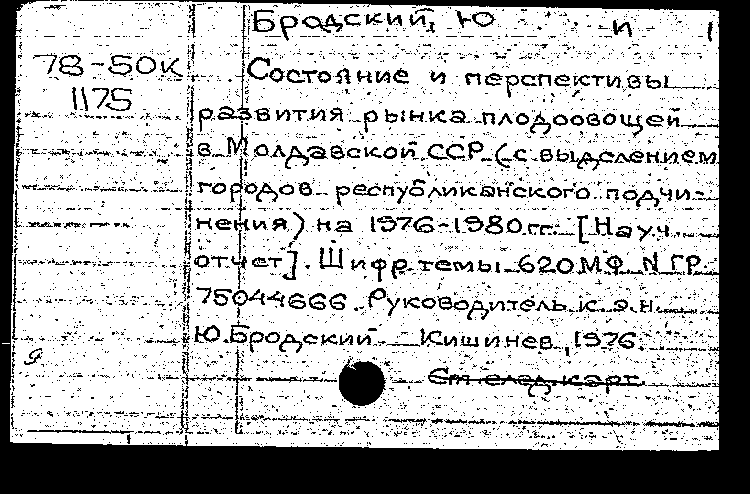 Бродский, Ю и 1
78-50к
1175
Состояние и перспективы
развития рынка плодоовощей
в Молдавской ССР (с выделением
городов республиканского подчи-
нения) на 1976-1980гг. [Науч.
отчет]. Шифр темы 620МФ N ГР
75044666. Руководитель к.э.н.
Ю.Бродский Кишинев, 1976.
д
См след.карт.